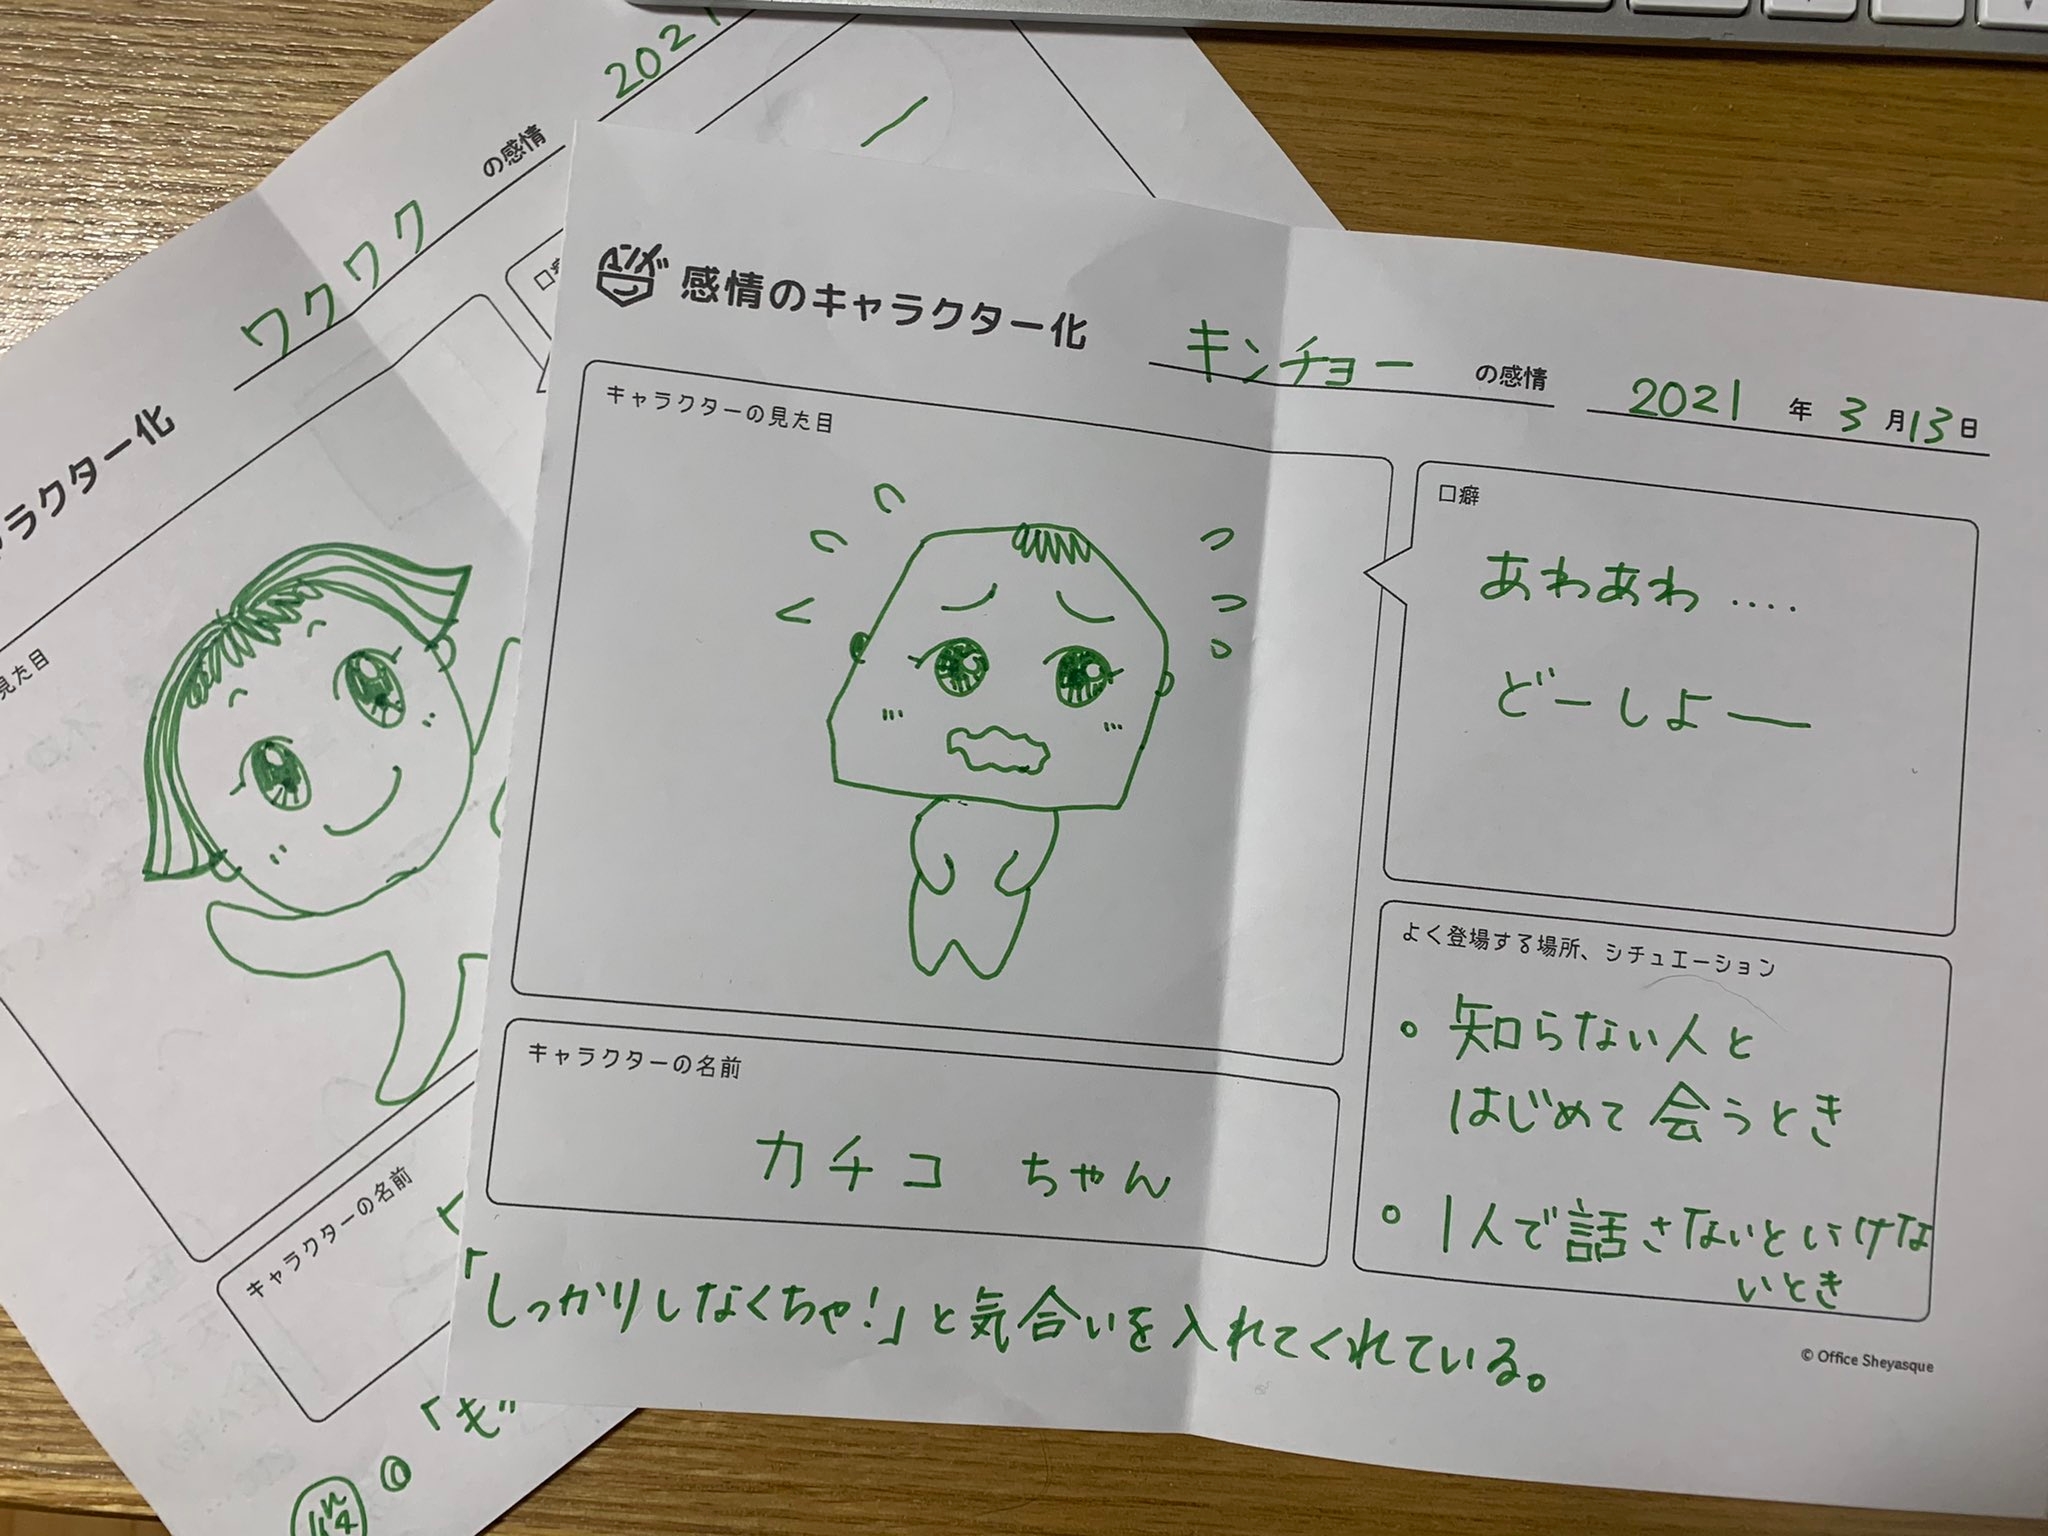 感情のキャラクター化
キンチョー の感情
2021 年 3 月 13 日
キャラクターの見た目
口癖
あわあわ‥‥
どーしよー
よく登場する場所、シチュエーション
○ 知らない人と
はじめて会うとき
○ 1人で話さないといけな
いとき
キャラクターの名前
カチコ ちゃん
「しっかりしなくちゃ!」と気合いを入れてくれている。
© Office Sheyasque
ラクター化
ワクワク の感情
2021
見た目
キャラクターの名前